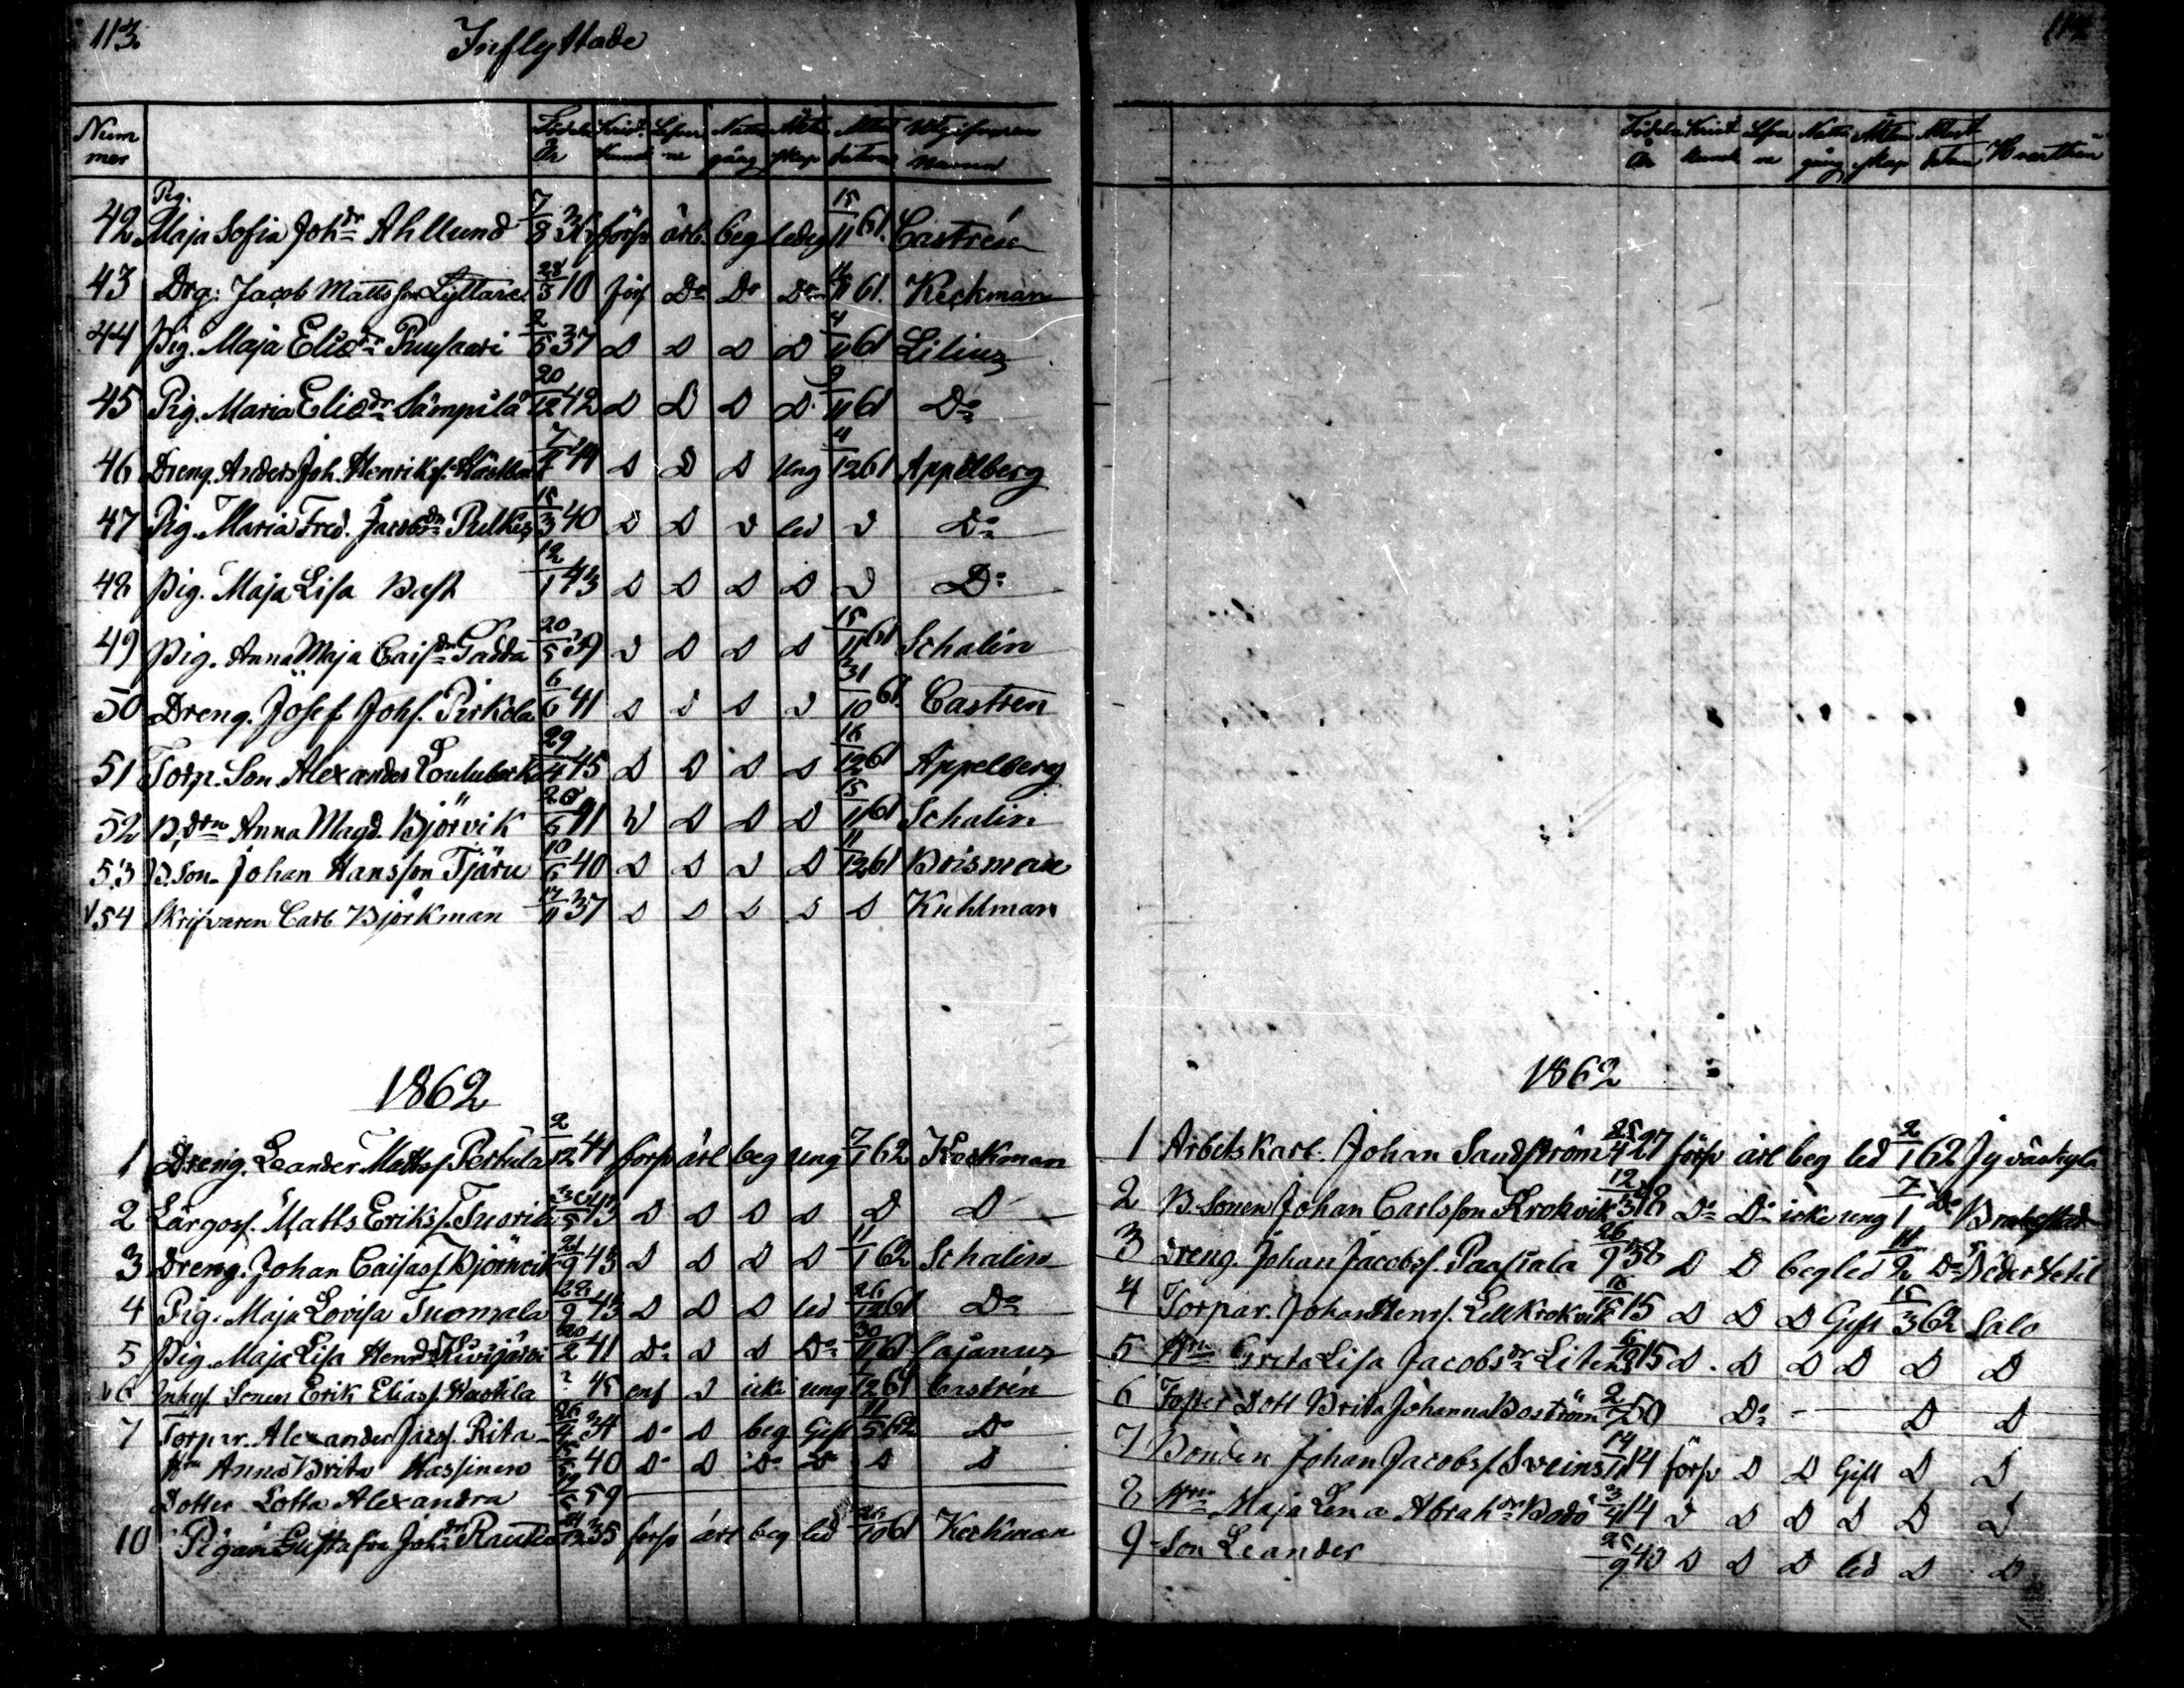 113.
Inflyttade
Num mer Födelse År Krist. kunsk Lefver ne Natt gång Ägten skap Attest datum Utgifvarens Namn
Pig.
42 Maja Sofia Johdr Ahllund 7/8 36 försv ärl. beg ledig 15/11 61. Castrén
43 Drg: Jacob Mattsson Lyttare 28/5 10 förs Do Do Do 61. Keckman
44 Pig. Maja Eliedr Puusaari 2/5 37 D D D D 4/11 61 Lilius
45 Pig. Maria Eliedr Sämpilä 20/12 42 D D D D 9/11 61 Do
46 Dreng. Anders Joh. Henriks. 7/ 44 D D D Ung 4/12 61 Appelberg
47 Pig. Maria Fred. Jacobsdr Pulkis 15/3 40 D D D led D Do
48 Pig. Maja Lisa Bast 12/1 43 D D D D D Do
49 Pig. Anna Maja Caisdr Gadda 20/5 39 D D D D 15/11 61 Schalin
50 Dreng. Josef Johs. Pirkola 6/6 41 D D D D 31/10 61. Castren
51 Torp. Son Alexander 29/4 45 D D D D 16/12 61 Appelberg
52 B. drn Anna Magd. Björvik 26/6 41 D D D D 15/11 61 Schalin
53 B. Son. Johan Hansson Tjäru 10/6 40 D D D D 11/12 61 Brisman
54 Skrifvaren Carl Björkman 17/11 37 D D D D D Kuhlman
1862
1 Dreng. Leander Mattss Pertula 2/12 41 försv ärl beg ung 7/1 62 Keckman
2 Lärgoss. Matts Erikss. Tuorila 30/5 43 D D D D D D
3 Dreng. Johan Caisass Björnvik 21/9 43 D D D D 11/1 62 Schalin
4 Pig. Maja Lovisa Tuomala 22/9 43 D D D led 26/12 61 Do
5 Pig. Maja Lisa Hendr Kivijärvi 20/2 41 Do D D Do 30/11 61 Cajanus
6 Inhys. Sonen Erik Eliass. ? 45 enf D icke ung 12 61 Castrén
7 Torpar. Alexander Jacs. Rita 26/4 34 Do D beg Gift 11/5 62 Do
Hru Anna Brita Hassinen 40 Do D Do Do D D
Dotter Lotta Alexandra 59
10 Pigan Gustafva Johdr Rautio 24/12 35 försv ärl beg led 26/10 61 Keckman
114
Födelse År Krist kunsk Lefver ne Natt gång Ägten skap Attest datum Hvarthän
1862
1 Arbetskarl. Johan Sandström 25/4 27 försv ärl beg led 2/1 62 Jyväskylä
2 B. Sonen Johan Carlsson Krokvik 12/3 48 Do Do icke ung 7/1 Do Brahestad
3 Dreng. Johan Jacobs. Paasiala 26/9 38 D D beg led 11/2 Do Nedervetil
4 Torpar. Johan Henrs. Lill Krokvik 18/ 15 D D D Gift 15/3 62 Salo
5 Hru Greta Lisa Jacobsdr Liten 6/9 15 D. D D D D D
6 Foster Dott Brita Johanna Boström 2/7 50 Do - D D
7 Bonden Johan Jacobs. Sveins 14/11 14 försv D D Gift D D
8 Hru Maja Lena Abrahdr Bodö 3/4 14 D D D D D D
9 Son Leander 25/9 40 D D D led D D